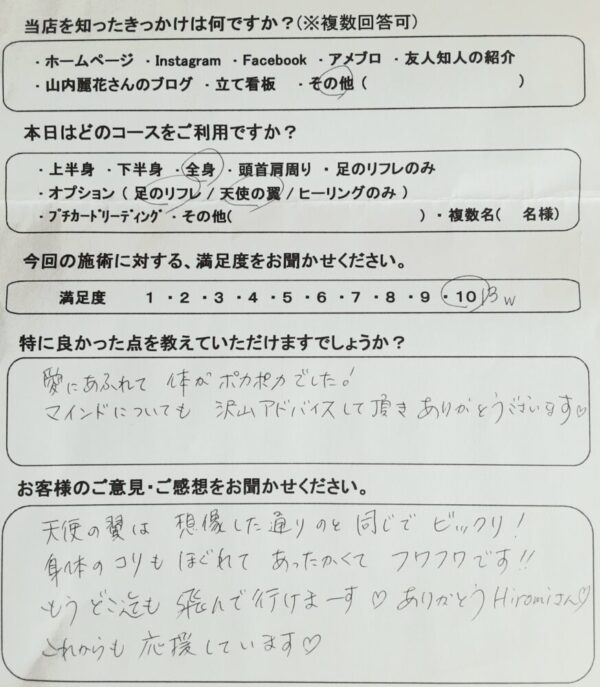 当店を知ったきっかけは何ですか？(※複数回答可)
・ホームページ ・Instagram ・Facebook ・アメブロ ・友人知人の紹介
・山内麗花さんのブログ ・立て看板 ・その他 ( )
本日はどのコースをご利用ですか？
・上半身 ・下半身 ・全身 ・頭首肩周り ・足のリフレのみ
・オプション ( 足のリフレ / 天使の翼 / ヒーリングのみ )
・ﾌﾟﾁｶｰﾄﾞﾘｰﾃﾞｨﾝｸﾞ ・その他( ) ・複数名( 名様)
今回の施術に対する、満足度をお聞かせください。
満足度 1 ・2 ・3 ・4 ・5 ・6 ・7 ・8 ・9 ・10 13 w
特に良かった点を教えていただけますでしょうか？
愛にあふれて 体が ポカポカでした！
マインドについても 沢山アドバイスして頂き ありがとうございます♡
お客様のご意見・ご感想をお聞かせください。
天使の翼は 想像した通りのと 同じで ビックリ！
身体のコリも ほぐれて あったかくて フワフワです!!
もう どこ迄も 飛んで行けまーす♡ ありがとう Hiromiさん♡
これからも 応援しています♡